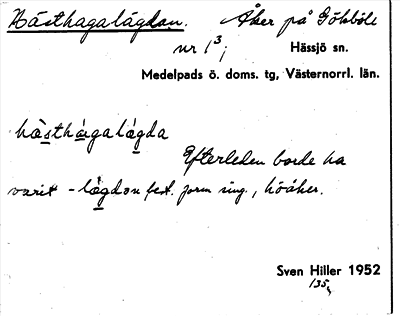 Hästhagalägdan. Åker på Gökböle
nr 1³;
Hässjö sn.
Medelpads ö. doms. tg, Västernorrl. län.
hästhagalägda
Efterleden borde ha
varit -lägdon best. form sing., höåker.
Sven Hiller 1952
135